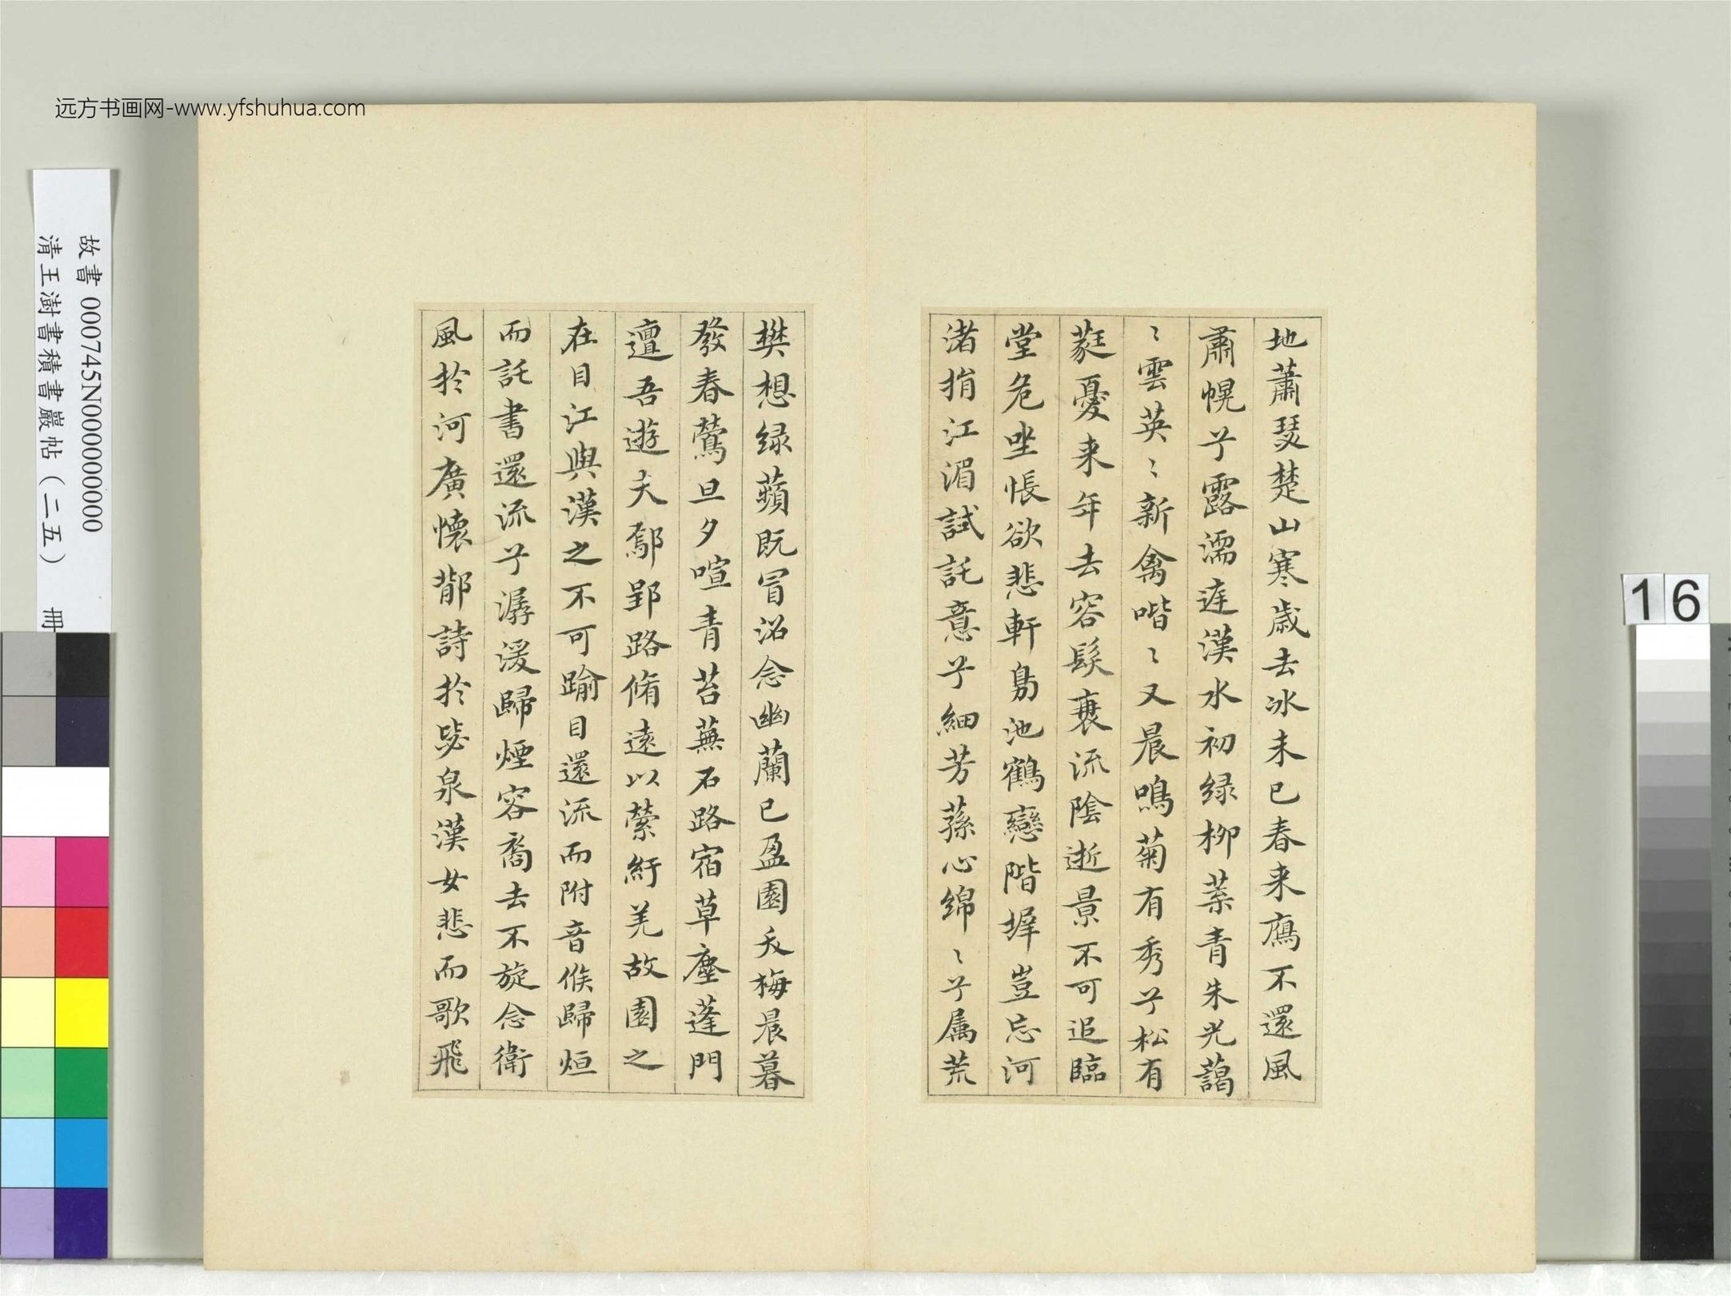 远方书画网-www.yfshuhua.com
故書 000745N000000000
清王澍書積書巖帖(二五) 冊
16
地蕭瑟楚山寒歳去冰未已春来鴈不還風
肅幌兮露濡庭漢水初绿柳葉青朱光藹
〻雲英〻新禽喈〻又晨鳴菊有秀兮松有
蕤憂来年去容髮衰流陰逝景不可追臨
堂危坐悵欲悲軒鳧池鶴戀階墀豈忘河
渚捐江湄試託意兮細芳蓀心綿〻兮属荒
樊想绿蘋既冒沼念幽蘭已盈園夭梅晨暮
發春鶯旦夕喧青苔蕪石路宿草塵蓬門
邅吾遊夫鄢郢路脩遠以縈紆羌故園之
在目江與漢之不可踰目還流而附音候歸烜
而託書還流兮潺湲歸煙容裔去不旋念衛
風於河廣懷鄁詩於毖泉漢女悲而歌飛